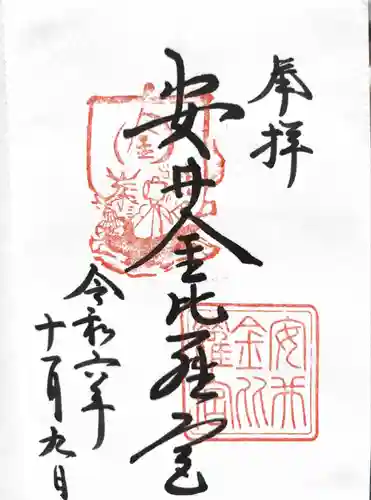 奉拝
安井金比羅宮
令和六年
十一月九日
安井
金比
羅宮